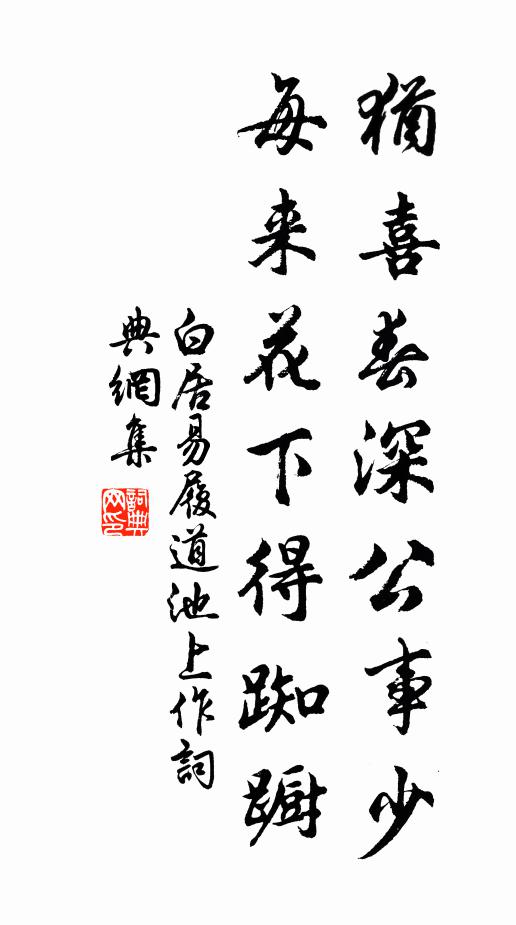 猶喜春深公事少
每来花下得踟蹰
白居易履道池上作詞
典網集
詞典网印